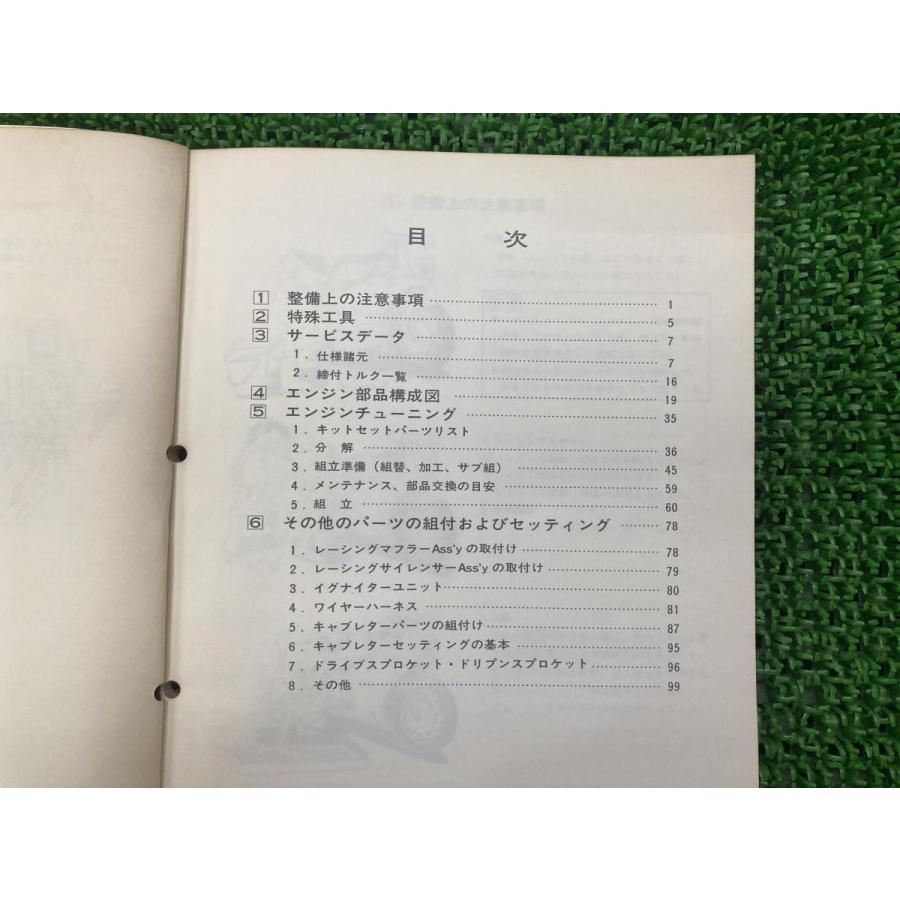 目 次
1 整備上の注意事項 1
2 特殊工具 5
3 サービスデータ 7
1. 仕様諸元 7
2. 締付トルク一覧 16
4 エンジン部品構成図 19
5 エンジンチューニング 35
1. キットセットパーツリスト
2. 分 解 36
3. 組立準備（組替、加工、サブ組） 45
4. メンテナンス、部品交換の目安 59
5. 組 立 60
6 その他のパーツの組付およびセッティング 78
1. レーシングマフラーAss'yの取付け 78
2. レーシングサイレンサーAss'yの取付け 79
3. イグナイターユニット 80
4. ワイヤーハーネス 81
5. キャブレターパーツの組付け 87
6. キャブレターセッティングの基本 95
7. ドライブスプロケット・ドリブンスプロケット 96
8. その他 99